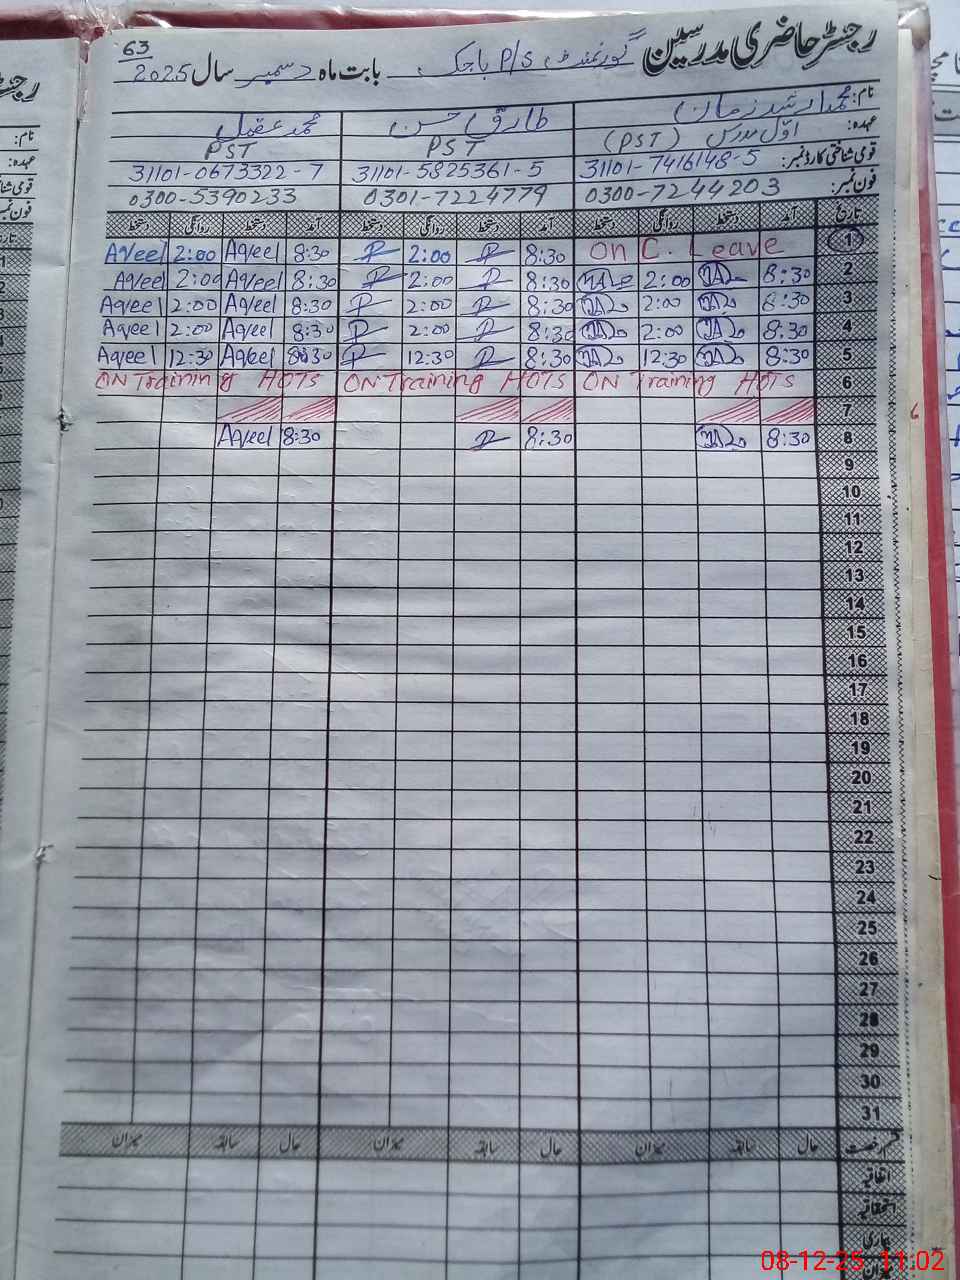 63
رجسٹر حاضری مدرسین گورنمنٹ P/S باجک بابت ماہ دسمبر سال 2025
نام: محمد ارشد زمان طارق حسن محمد عقیل
عہدہ: اول مدرس (PST) PST PST
قومی شناختی کارڈ نمبر: 31101-7416148-5 31101-5825361-5 31101-0673322-7
فون نمبر: 0300-7244203 0301-7224779 0300-5390233
تاریخ آمد دستخط روانگی دستخط آمد دستخط روانگی دستخط آمد دستخط روانگی دستخط
1 On C. Leave 8:30 2:00 8:30 Aqeel 2:00 Aqeel
2 8:30 2:00 8:30 2:00 8:30 Aqeel 2:00 Aqeel
3 8:30 2:00 8:30 2:00 8:30 Aqeel 2:00 Aqeel
4 8:30 2:00 8:30 2:00 8:30 Aqeel 2:00 Aqeel
5 8:30 12:30 8:30 12:30 8:30 Aqeel 12:30 Aqeel
6 ON Training HOTs ON Training HOTs ON Training HOTs
7
8 8:30 8:30 8:30 Aqeel
9
10
11
12
13
14
15
16
17
18
19
20
21
22
23
24
25
26
27
28
29
30
31
قسم رخصت حال سابقہ میزان حال سابقہ میزان حال سابقہ میزان
اتفاقیہ
استحقاقیہ
بیماری
08-12-25 11:02